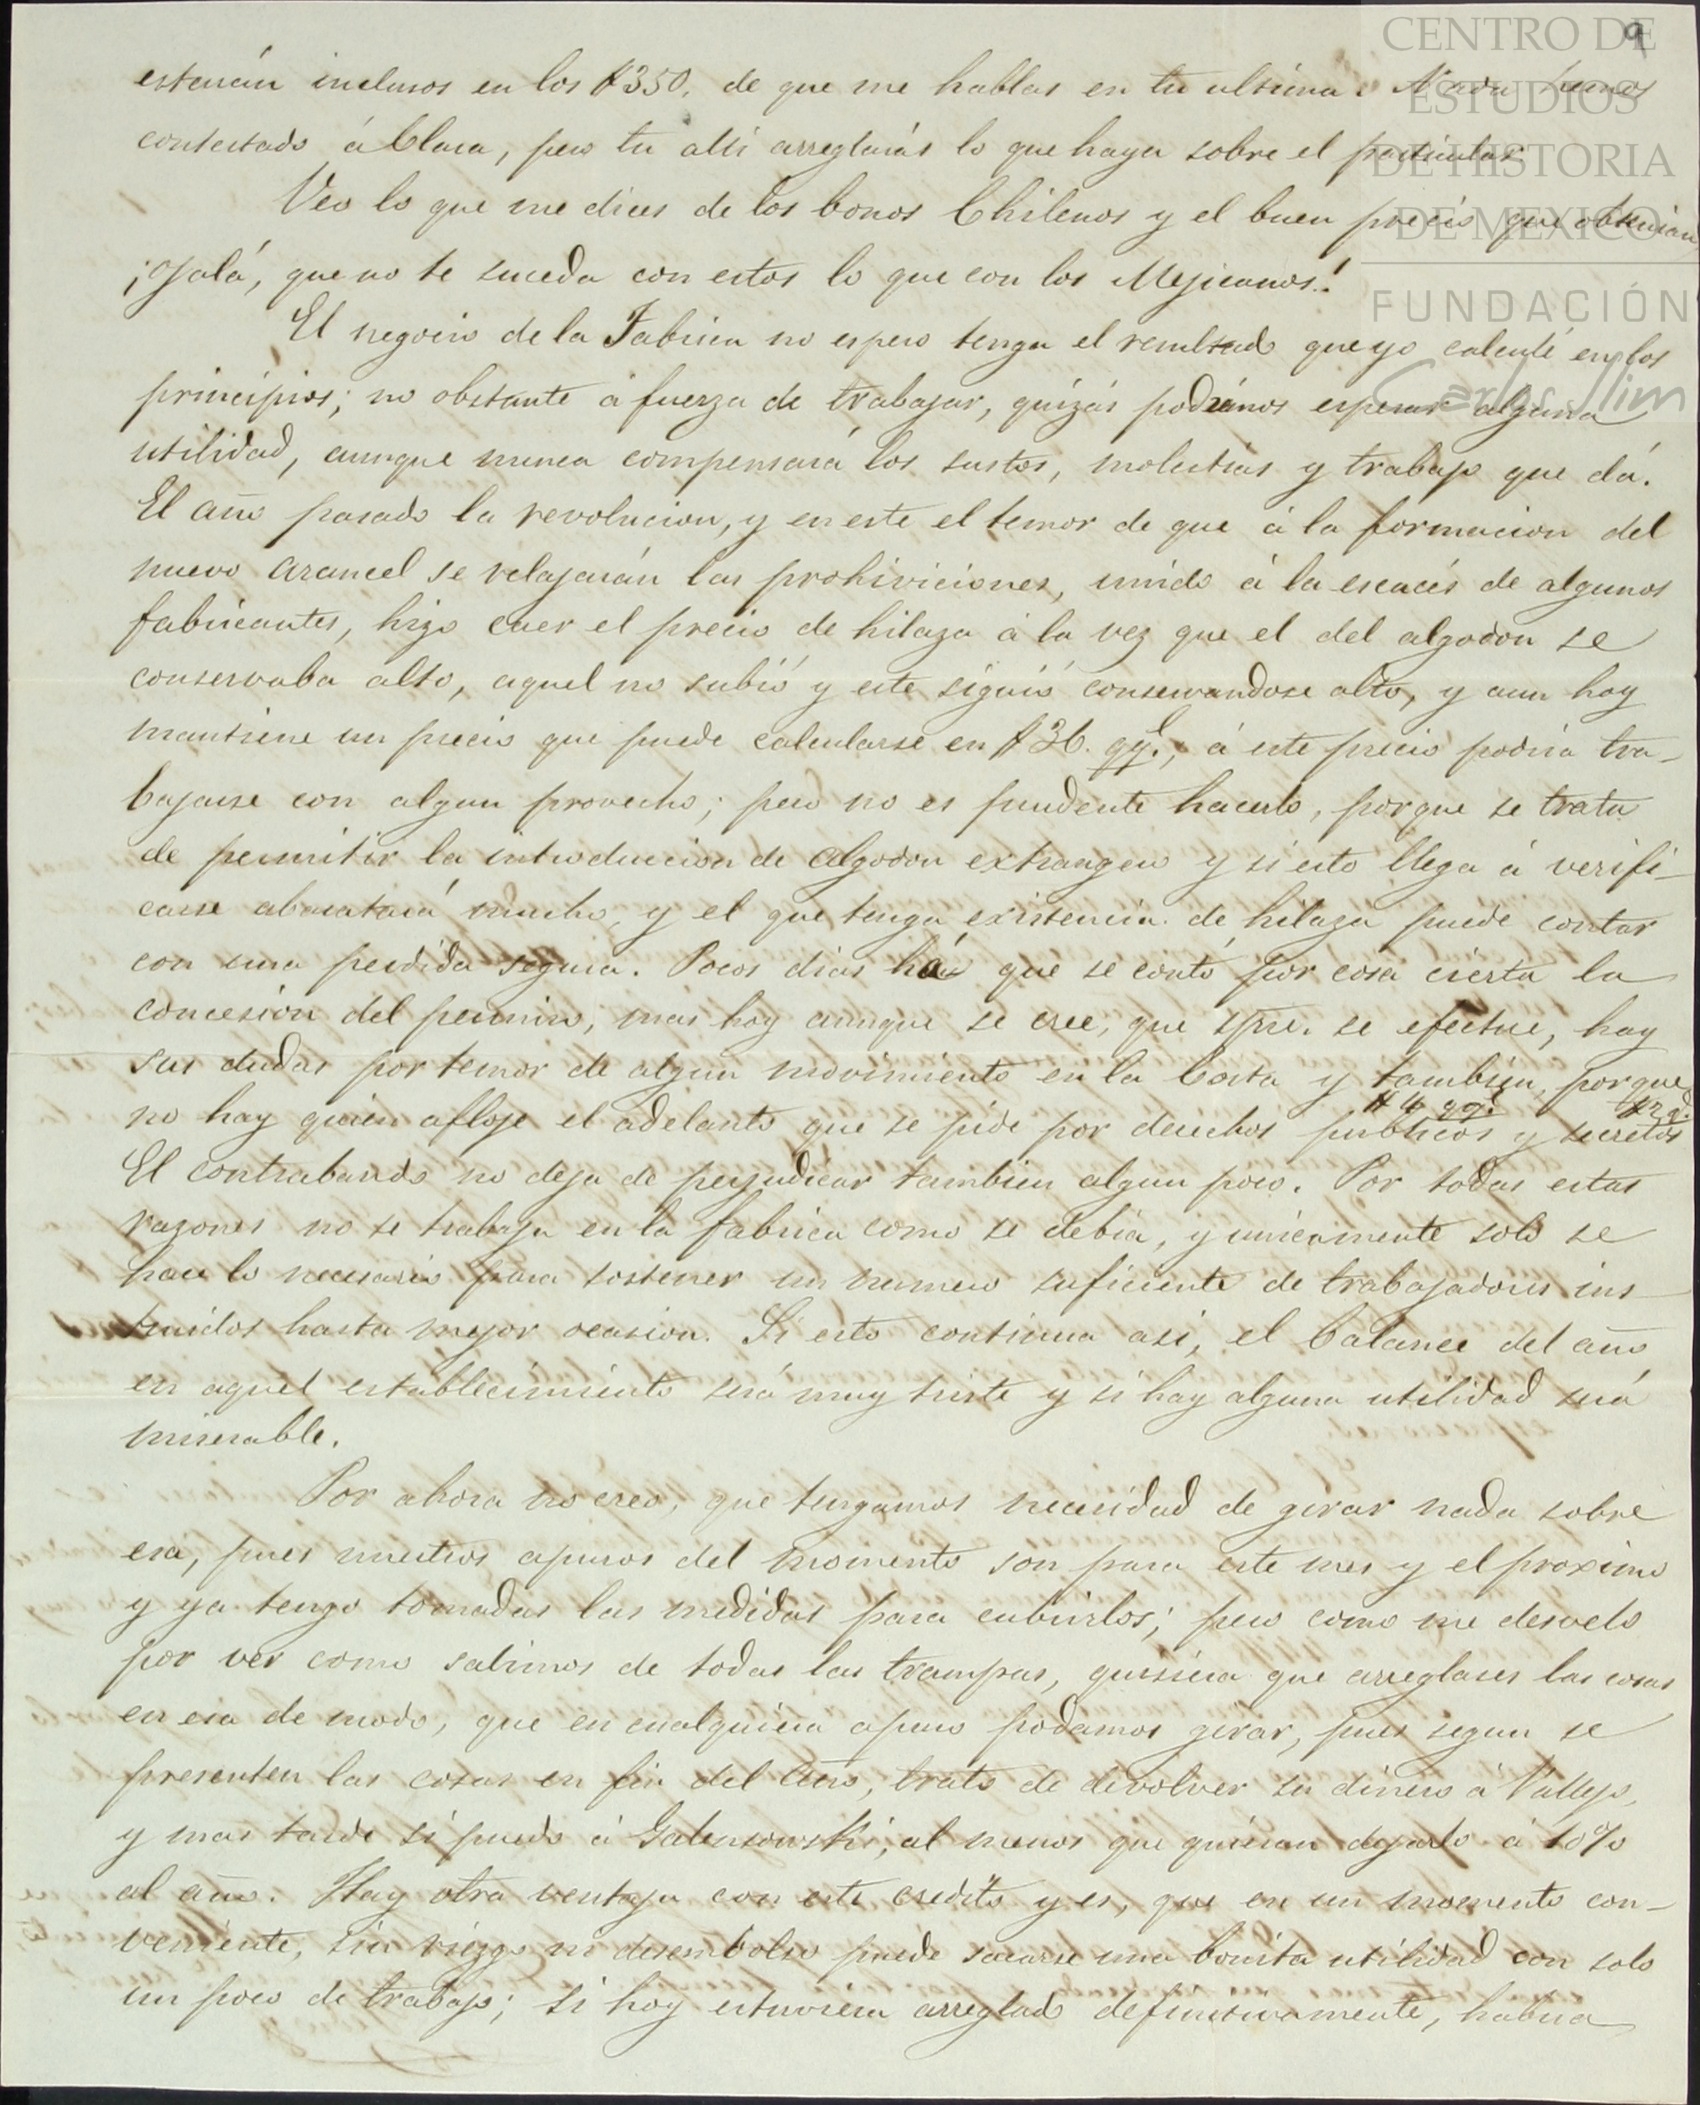 9
CENTRO DE
ESTUDIOS
DE HISTORIA
DE MEXICO
FUNDACIÓN
Carlos Slim
estarán inclusos en los $350. de que me hablas en tu ultima. Nada hemos
contestado á Clara, pero tu alli arreglarás lo que haya sobre el particular.
Veo lo que me dices de los bonos Chilenos y el buen precio que obtenian
¡Ojalá, que no te suceda con estos lo que con los Mejicanos!
El negocio de la Fabrica no espero tenga el resultado que yo calculé en los
principios; no obstante á fuerza de trabajar, quizás podrémos esperar alguna
utilidad, aunque nunca compensará los sustos, molestias y trabajo que dá.
El año pasado la revolucion, y en este el temor de que á la formacion del
nuevo arancel se relajarán las prohiviciones, unido á la escacés de algunos
fabricantes, hizo caer el precio de hilaza á la vez que el del algodon se
conservaba alto, aquel no subió y este siguió conservandose alto, y aun hoy
mantiene un precio que puede calcularse en $36. qql., á este precio podria tra-
bajarse con algun provecho; pero no es prudente hacerlo, porque se trata
de permitir la introduccion de algodon extrangero y si esto llega á verifi-
carse abaratará mucho, y el que tenga existencia de hilaza puede contar
con una perdida segura. Pocos dias há que se contó por cosa cierta la
concesión del permiso, mas hoy aunque se cree, que spre. se efectue, hay
sus dudas por temor de algun movimiento en la Costa y tambien, porque
no hay quien afloje el adelanto que se pide por derechos publicos y secretos
$4 qql. $2 q.
El contrabando no deja de perjudicar tambien algun poco. Por todas estas
razones no se trabaja en la fabrica como se debia, y unicamente solo se
hace lo necesario para sostener un numero suficiente de trabajadores ins-
truidos hasta mejor ocasion. Si esto continua asi, el balance del año
en aquel establecimiento será muy triste y si hay alguna utilidad será
miserable.
Por ahora no creo, que tengamos necesidad de girar nada sobre
esa, pues nuestros apuros del momento son para este mes y el proximo
y ya tengo tomadas las medidas para cubrirlos; pero como me desvelo
por ver como salimos de todas las trampas, quisiera que arreglases las cosas
en esa de modo, que en cualquiera apuro podamos girar, pues segun se
presenten las cosas en fin del año, trato de devolver su dinero á Vallejo,
y mas tarde si puedo á Galensowski, al menos que quieran dejarlo á 10%
al año. Hay otra ventaja con este credito y es, que en un momento con-
veniente, sin riezgo ni desembolso puede sacarse una bonita utilidad con solo
un poco de trabajo; si hoy estuviera arreglado definitivamente, habria